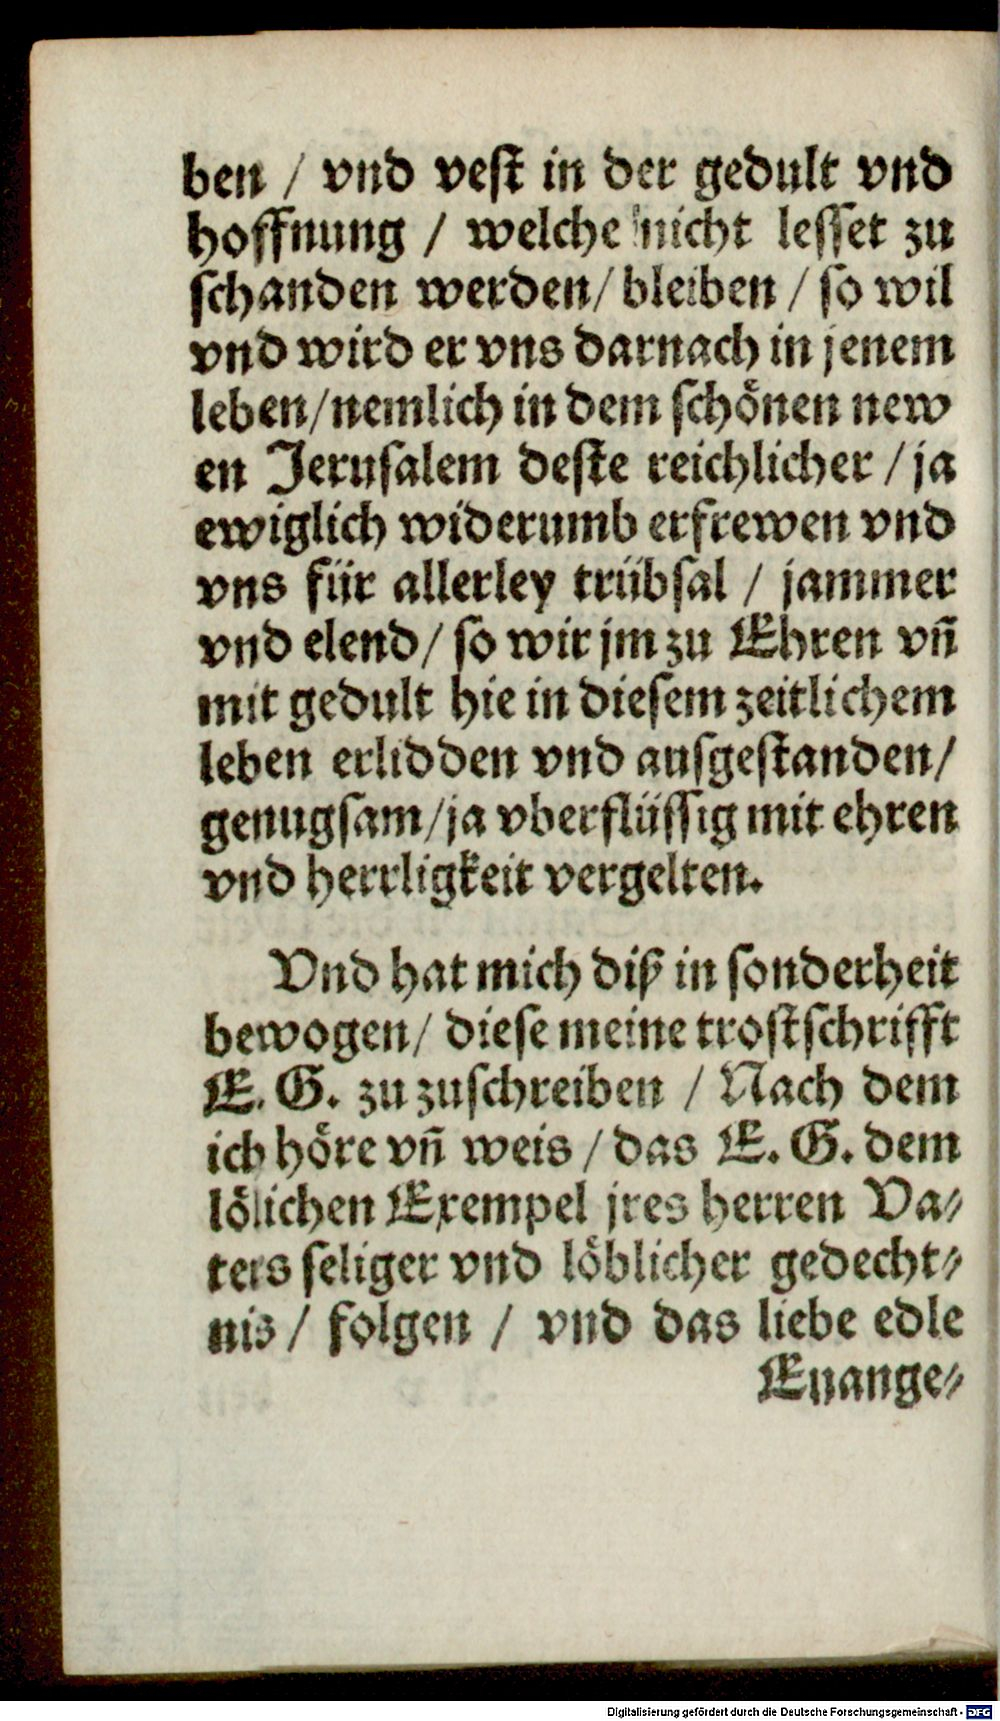 ben / vnd vest in der gedult vnd
hoffnung / welche nicht lesset zu
schanden werden / bleiben / so wil
vnd wird er vns darnach in jenem
leben / nemlich in dem schönen new
en Jerusalem deste reichlicher / ja
ewiglich widerumb erfrewen vnd
vns für allerley trübsal / jammer
vnd elend / so wir jm zu Ehren vn̄
mit gedult hie in diesem zeitlichem
leben erlidden vnd ausgestanden /
genugsam / ja vberflüssig mit ehren
vnd herrligkeit vergelten.
Vnd hat mich diß in sonderheit
bewogen / diese meine trostschrifft
E. G. zu zuschreiben / Nach dem
ich höre vn̄ weis / das E. G. dem
lölichen Exempel jres herren Va⸗
ters seliger vnd löblicher gedecht⸗
nis / folgen / vnd das liebe edle
Euange⸗
Digitalisierung gefördert durch die Deutsche Forschungsgemeinschaft - DFG